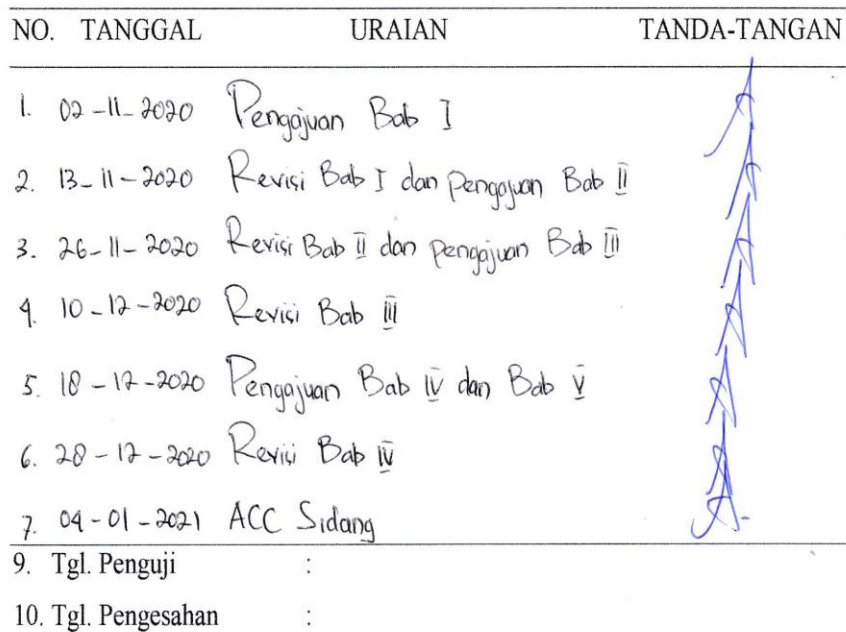 NO. TANGGAL URAIAN TANDA-TANGAN
1. 02-11-2020 Pengajuan Bab I
2. 13-11-2020 Revisi Bab I dan pengajuan Bab II
3. 26-11-2020 Revisi Bab II dan pengajuan Bab III
4. 10-12-2020 Revisi Bab III
5. 18-12-2020 Pengajuan Bab IV dan Bab V
6. 28-12-2020 Revisi Bab IV
7. 04-01-2021 ACC Sidang
9. Tgl. Penguji :
10. Tgl. Pengesahan :